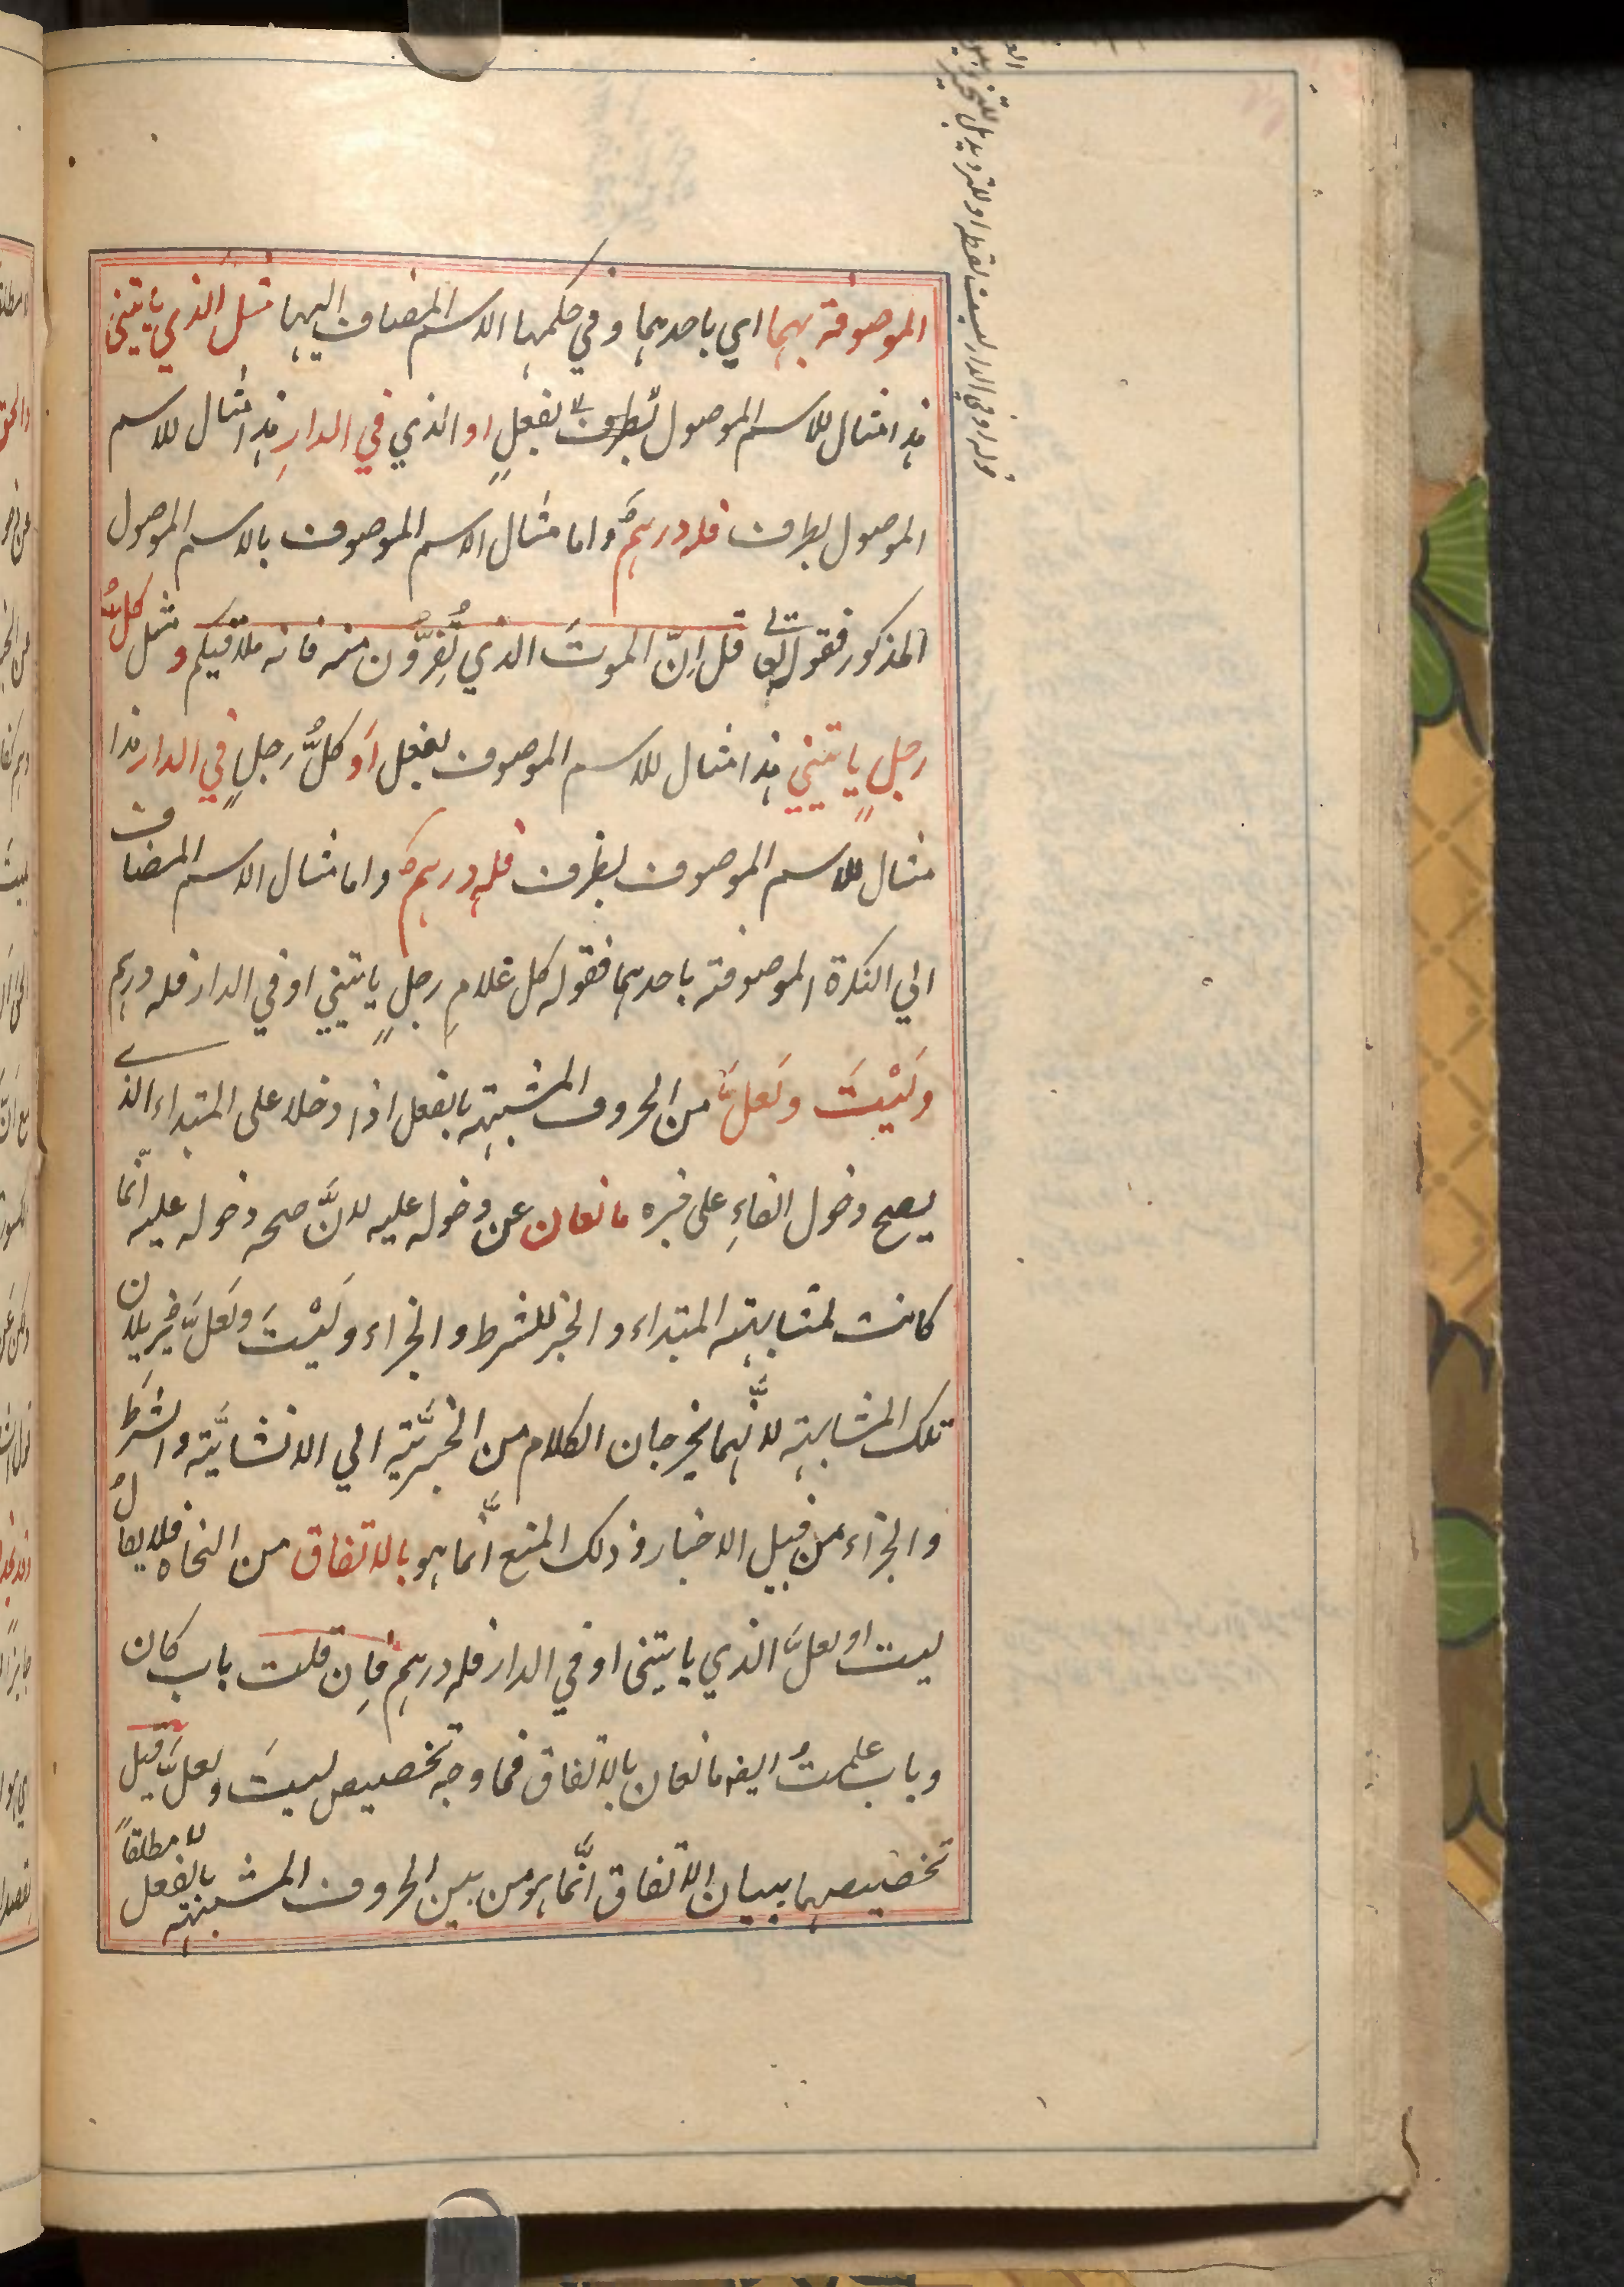 الموصوفة بهما اي باحدهما وفي حكمها الاسم المضاف اليها مثل الذي يأتيني
هذا مثال للاسم الموصول بفعلٍ او الذي في الدارِ هذا مثال للاسم
الموصول بظرف فله درهمٌ واما مثال الاسم الموصوف بالاسم الموصول
المذكور فقوله تعالى قل اِنّ الموتَ الذي تَفِرُّونَ منه فانه ملاقيكم ومثل كلُّ
رجلٍ ياتيني هذا مثال للاسم الموصوف بفعل اَو كلُّ رجلٍ في الدار هذا
مثال للاسم الموصوف بظرف فله درهمٌ واما مثال الاسم المضاف
الي النكرة الموصوفة باحدهما فقوله كل غلامِ رجلٍ ياتيني او في الدار فله درهم
ولَيْتَ ولَعلَّ من الحروف المشبهة بالفعل اذا دخلا على المبتداء الذي
يصح دخول الفاءِ على خبره مانعان عن دخوله عليه لانَّ صحه دخوله عليه انّما
كانت لمشابهة المبتداء والخبر للشرط والجزاء ولَيْتَ ولَعَلَّ يزيلان
تلك المشابهة لانَّهما يخرجان الكلام من الخبريَّة الي الانشايَّة والشرط
والجزاء من قبيل الاخبار وذلك المنع انَّما هو بالاتفاق من النحاه فلا يقالُ
ليت او لعلَّ الذي ياتيني او في الدار فله درهم فاِن قلت باب كان
وباب علمتُ ايضه مانعان بالاتفاق فما وجه تخصيص ليتَ ولعلَّ قيل
تخصيصهما ببيان الاتفاق انَّما هو من بين الحروف المشبهة بالفعل لا مطلقاً
قوله او في الدار